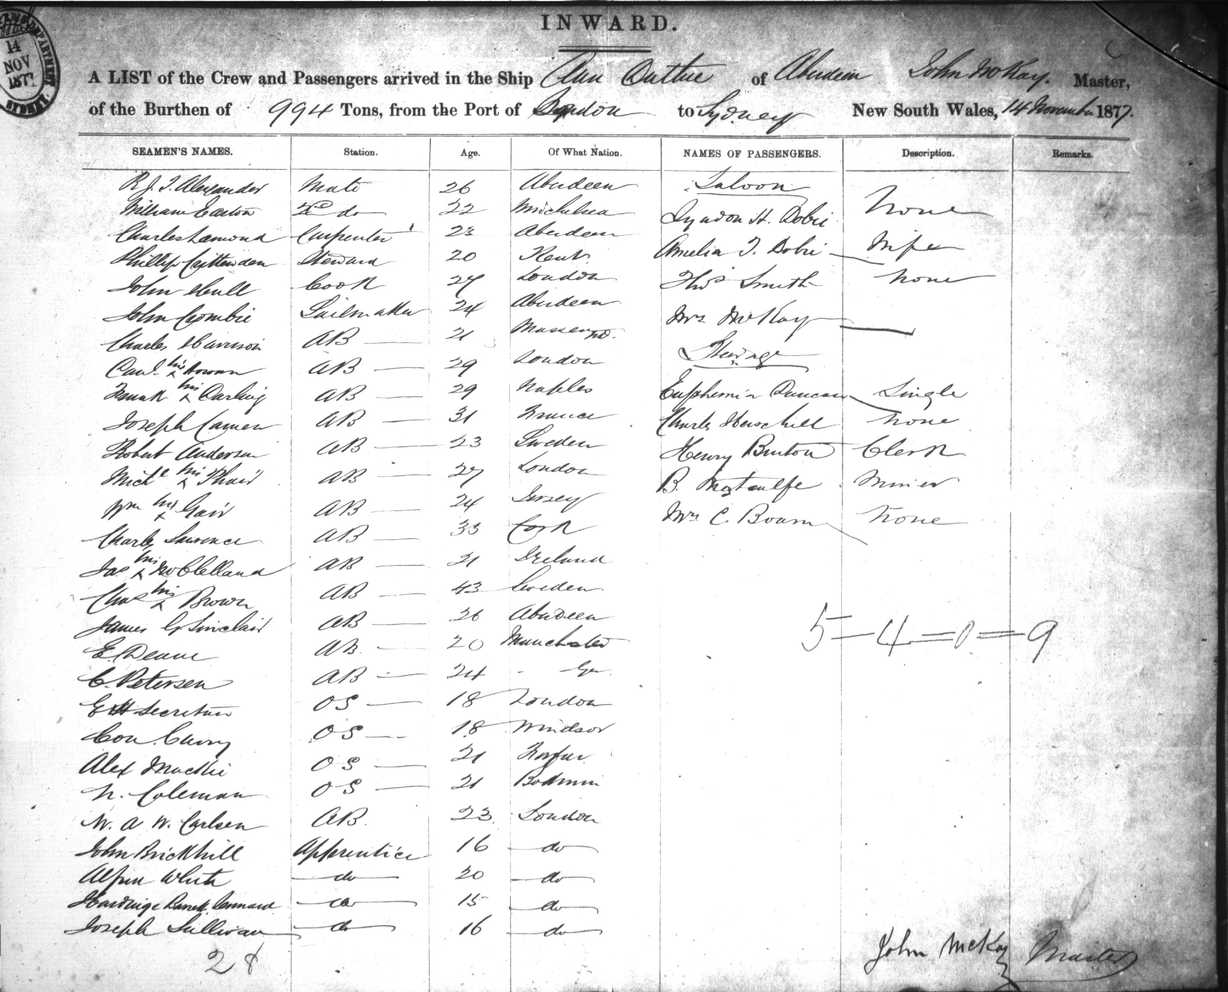 INWARD.
14
NOV
1877
A LIST of the Crew and Passengers arrived in the Ship Ann Duthie of Aberdeen John McKay. Master,
of the Burthen of 994 Tons, from the Port of London to Sydney New South Wales, 14 November 1877.
SEAMEN'S NAMES. Station. Age. Of What Nation. NAMES OF PASSENGERS. Description. Remarks.
R. J. T. Alexander Mate 26 Aberdeen Saloon
William Easton 2d do 22 Lyndon H. Dobie None
Charles Lamond Carpenter 23 Aberdeen Amelia T. Dobie Wife
Phillip Crittenden Steward 20 Kent
John Hull Cook 27 London Thos Smith None
John Crombie Sailmaker 24 Aberdeen Mrs McKay
Charles Harrison AB 21
his x AB 29 London Steerage
Frank his x Darling AB 29 Naples Euphemia Duncan Single
Joseph AB 31 France Charles Herschell None
Robert Anderson AB 23 Sweden Henry Burton Clerk
Michl his x AB 27 London B. Metcalfe Miner
Wm his x Gair AB 24 Jersey Mrs C. Boam None
Charles Laurence AB 33 Cork
Jas his x McClelland AB 21 Ireland
Chas his x Brown AB 43 Sweden
James G Sinclair AB 26 Aberdeen
E. Deane AB 20 Manchester
C. Petersen AB 24
5 - 4 = 0 = 9
E H Secretan OS 18 London
Con. Curry OS 18 Windsor
Alex Mackie OS 21
N. Coleman OS 21 Bodmin
W. A W. Carlsen AB 23 London
John Brickhill Apprentice 16 do
White do 20 do
Hardinge do 15 do
Joseph Sullivan do 16 do
28
John McKay Master